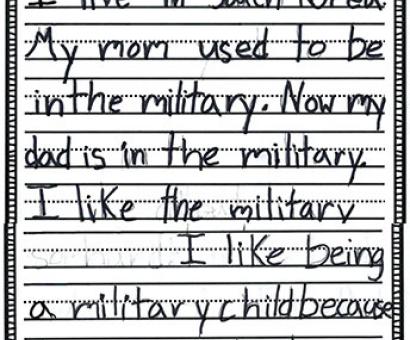 I live in South Korea.
My mom used to be
in the military. Now my
dad is in the military.
I like the military
I like being
a military child because